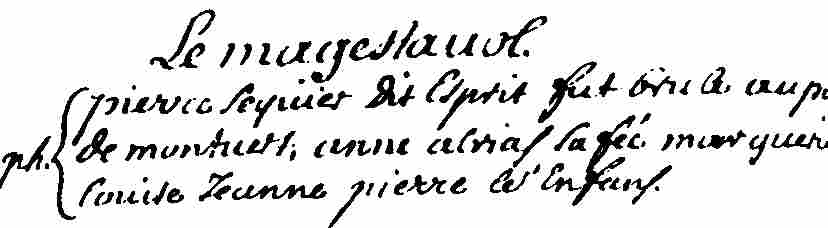 Le magestauol.
pierre seguier dit Esprit fut brulé au po
ph. de montuert, anne alrias sa fẽe margueri
Louise Jeanne pierre les Enfans.